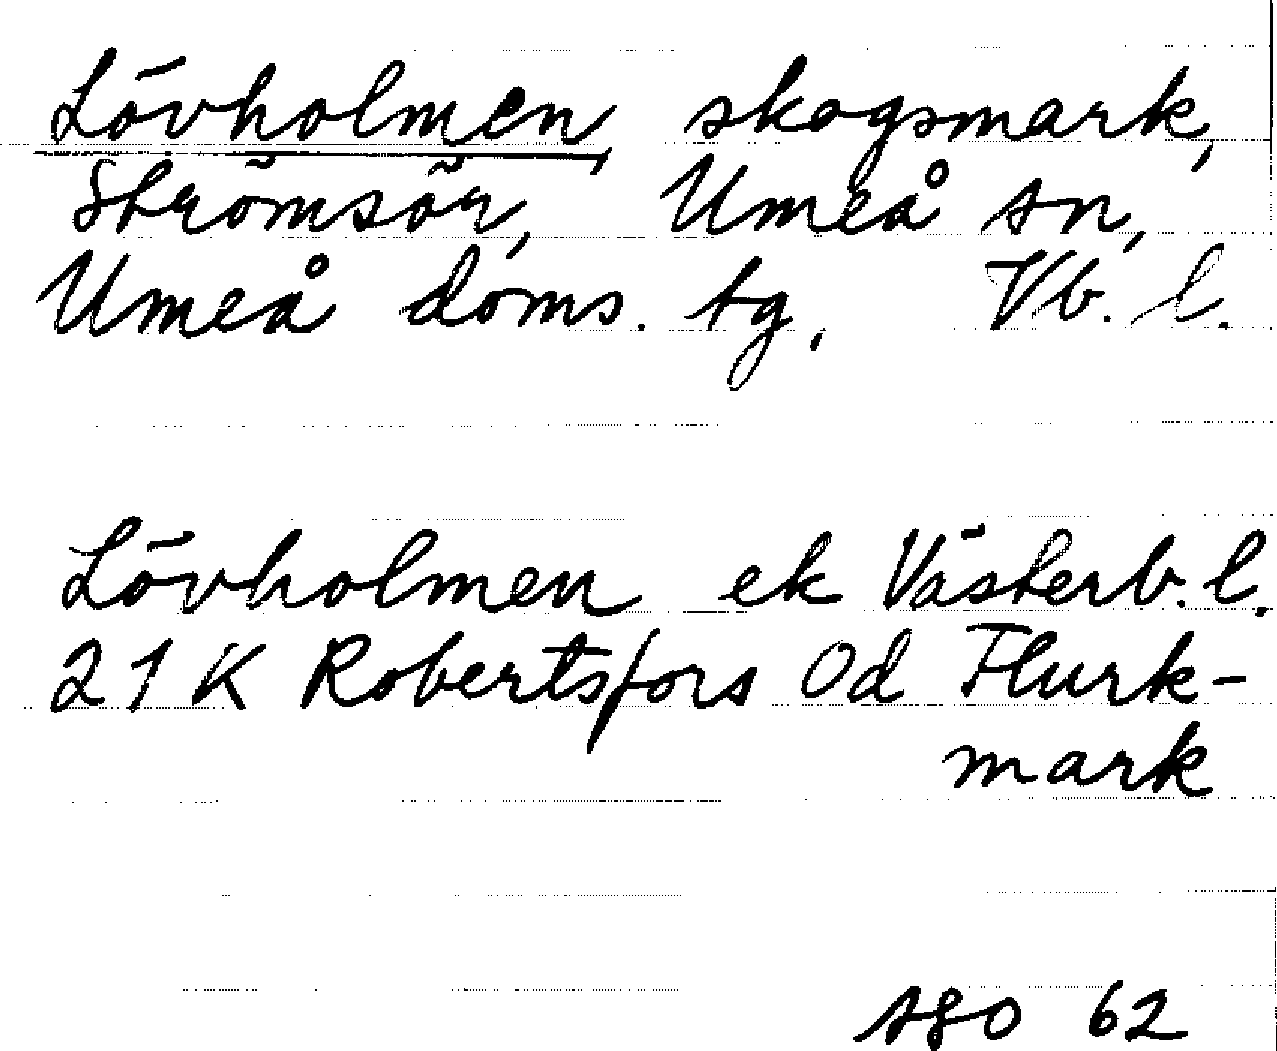 Lövholmen, skogsmark,
Strömsör, Umeå sn,
Umeå doms. tg, Vb. l.
Lövholmen ek Västerb. l.
21 K Robertsfors 0d Flurk-
mark
62